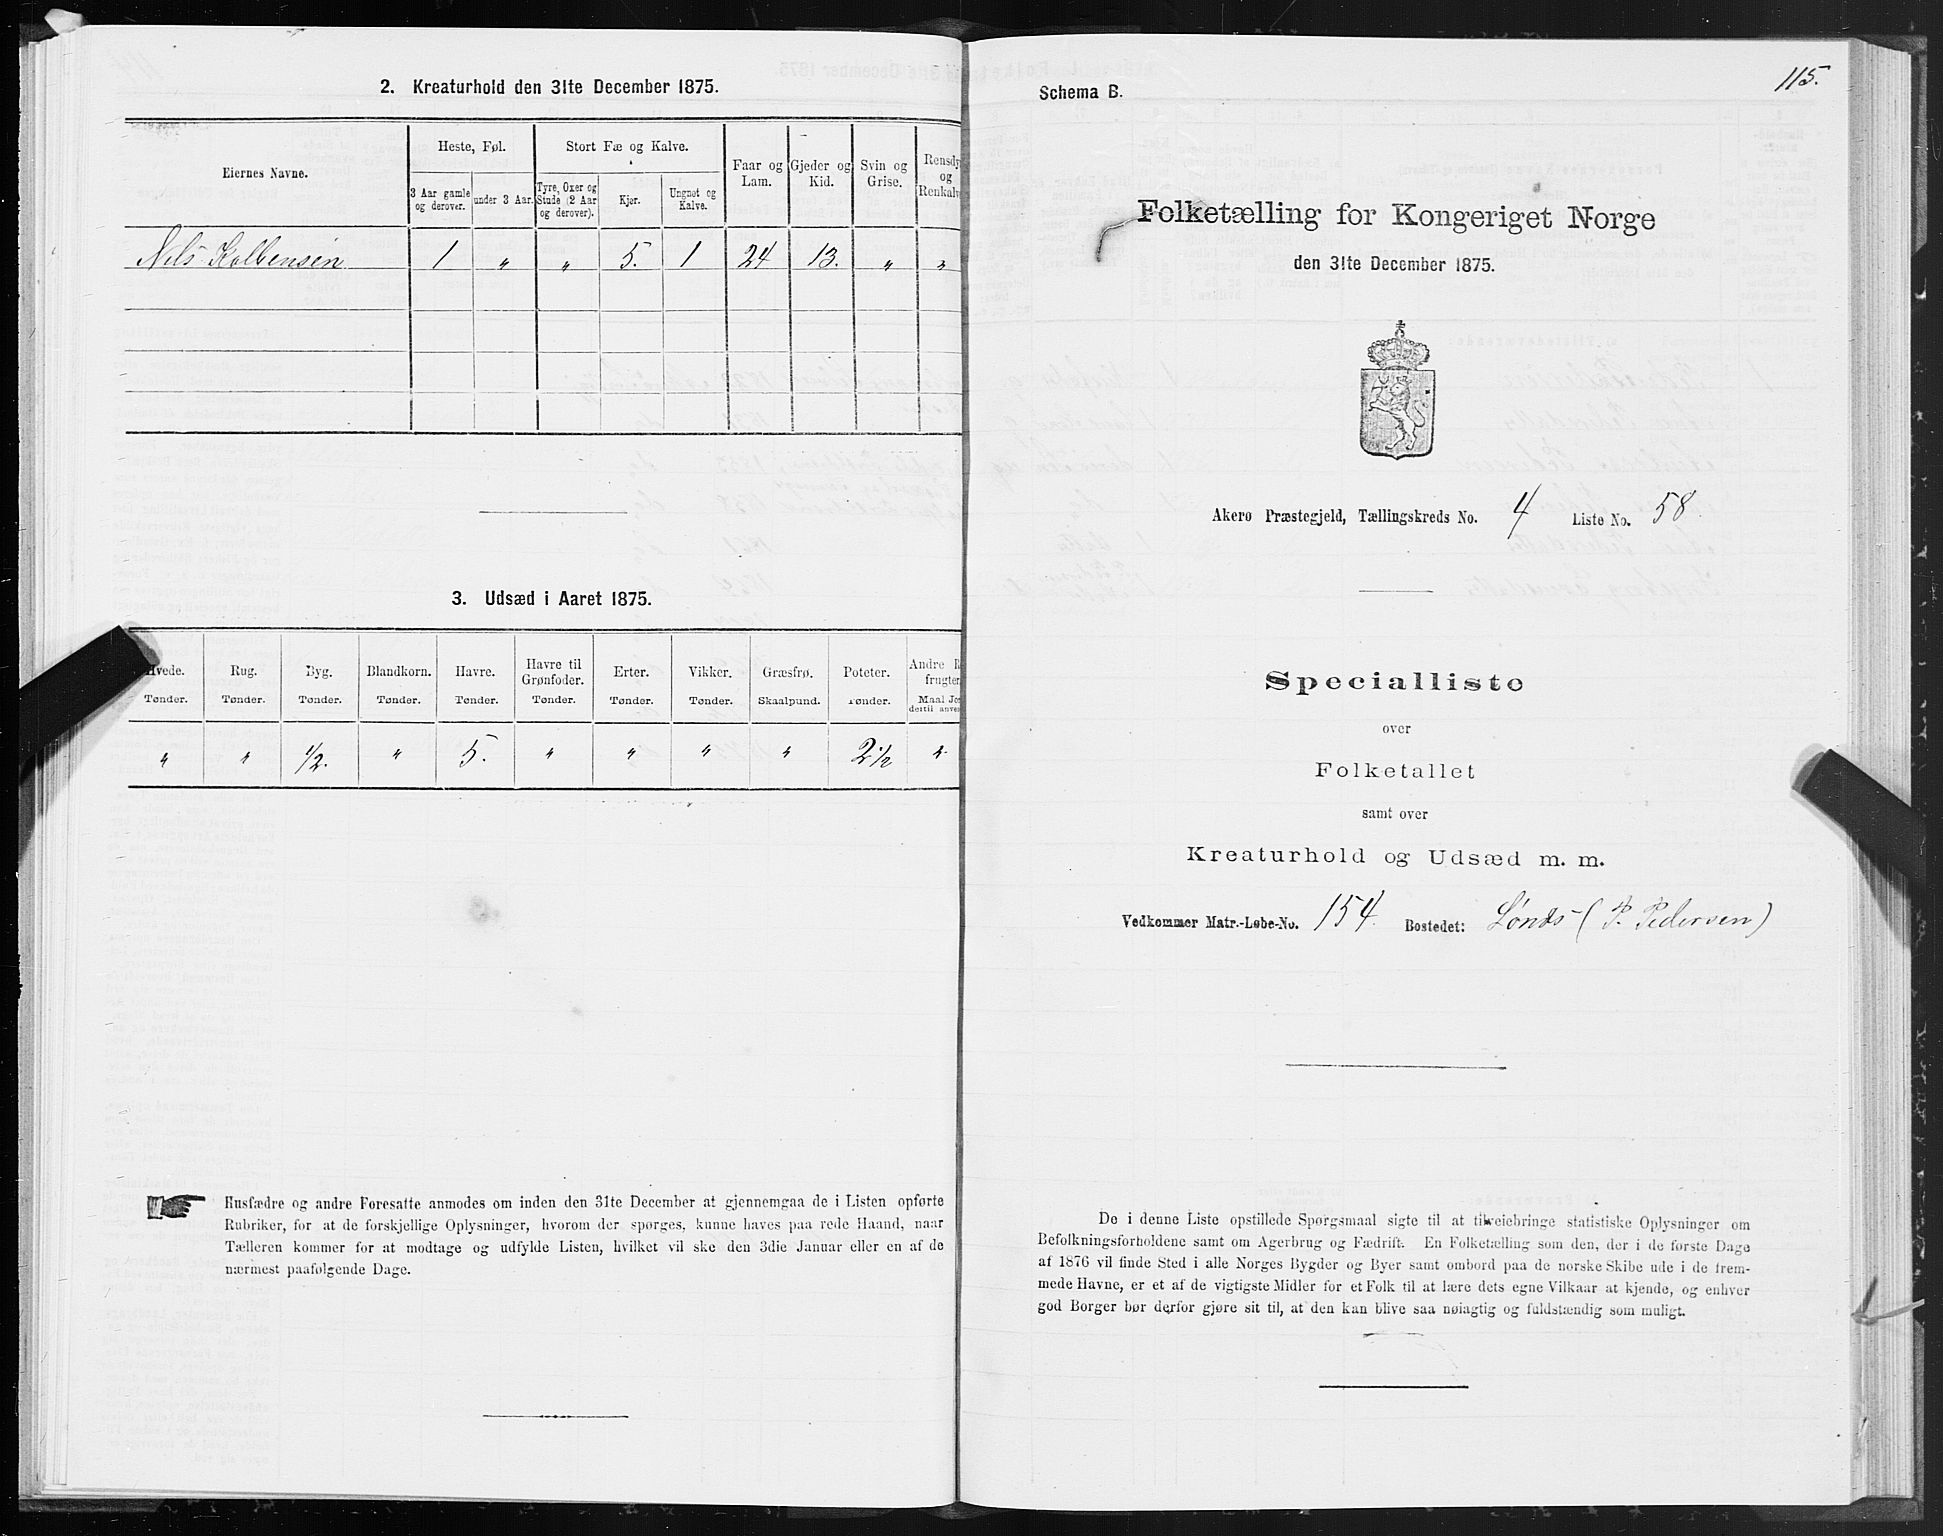 2. Kreaturhold den 31te December 1875.
Eiernes Navne.
Heste, Føl.
Stort Fæ og Kalve.
Faar og Lam.
Gjeder og Kid.
Svin og Grise.
Rensdy
og
Renkalv
3 Aar gamle og derover.
under 3 Aar.
Tyre, Oxer og Stude (2 Aar og derover).
Kjør.
Ungnøt og Kalve.
Nils Kolbensen 1 " " 5. 1 24 13. " "
3. Udsæd i Aaret 1875.
Hvede. Rug. Byg. Blandkorn. Havre. Havre til Grønfoder. Erter. Vikker. Græsfrø. Poteter. Andre R
frugter
Tønder. Tønder. Tønder. Tønder. Tønder. Tønder. Tønder. Tønder. Skaalpund. Tønder. Maal Jo
dertil anve
" " 1/2. " 5. " " " " 2 1/2 "
Husfædre og andre Foresatte anmodes om inden den 31te December at gjennemgaa de i Listen opførte
Rubriker, for at de forskjellige Oplysninger, hvorom der spørges, kunne haves paa rede Haand, naar
Tælleren kommer for at modtage og udfylde Listen, hvilket vil ske den 3die Januar eller en af de
nærmest paafølgende Dage.
115.
Schema B.
Folketælling for Kongeriget Norge
den 31te December 1875.
Akerø Præstegjeld, Tællingskreds No. 4 Liste No. 58.
Specialliste
over
Folketallet
samt over
Kreaturhold og Udsæd m. m.
Vedkommer Matr.-Løbe-No. 154. Bostedet: Lønds (P. Pedersen)
De i denne Liste opstillede Spørgsmaal sigte til at tilveiebringe statistiske Oplysninger om
Befolkningsforholdene samt om Agerbrug og Fædrift. En Folketælling som den, der i de første Dage
af 1876 vil finde Sted i alle Norges Bygder og Byer samt ombord paa de norske Skibe ude i de frem-
mede Havne, er et af de vigtigste Midler for et Folk til at lære dets egne Vilkaar at kjende, og enhver
god Borger bør derfor gjøre sit til, at den kan blive saa nøiagtig og fuldstændig som muligt.